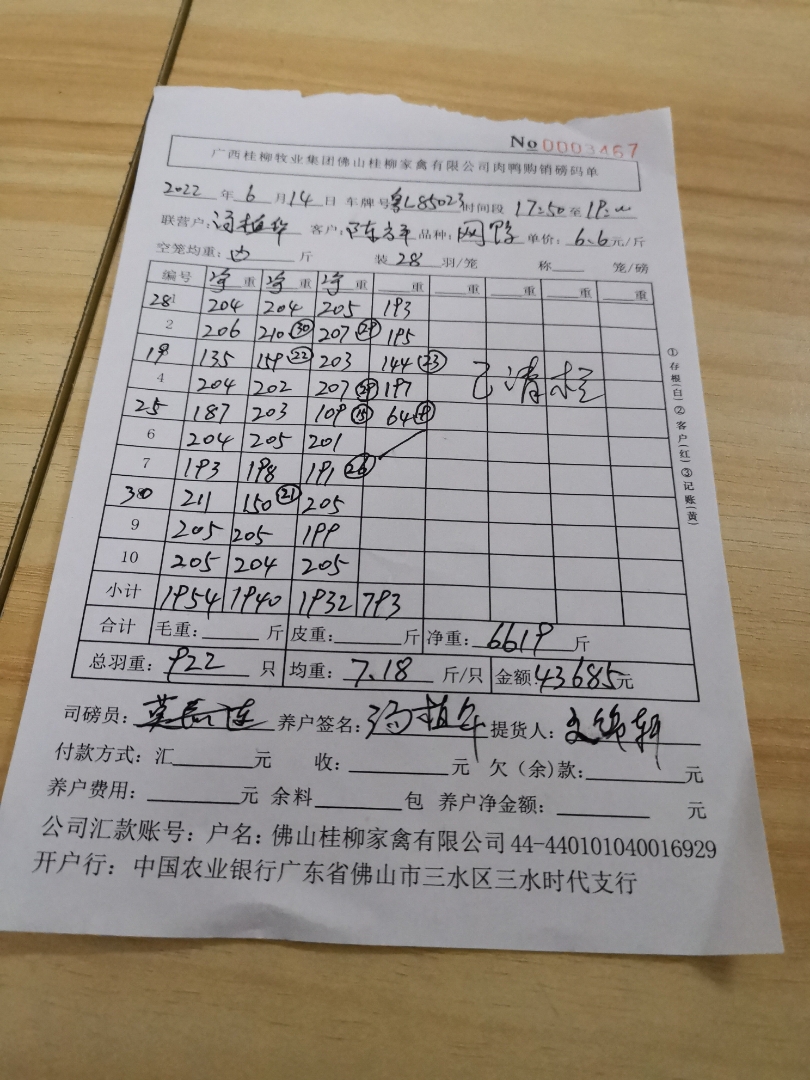 No 0003467
广西桂柳牧业集团佛山桂柳家禽有限公司肉鸭购销磅码单
2022 年 6 月 14 日 车牌号 粤L85023 时间段 17:50 至
联营户: 冯植华 客户: 陈 品种: 网鸭 单价: 6.6 元/斤
空笼均重: 斤 装 28 羽/笼 称 笼/磅
编号 净重 净重 净重 重 重 重 重 重
28 1 204 204 205 193
2 206 210 ㉚ 207 ㉙ 195
19 3 135 159 ㉒ 203 144 ㉓ 已清栏
4 204 202 207 ㉙ 197
25 187 203 109 ⑮ 64 ⑨
6 204 205 201
7 193 198 191 ㉖
30 211 150 ㉑ 205
9 205 205 199
10 205 204 205
小计 1954 1940 1932 793
合计 毛重: 斤 皮重: 斤 净重: 6619 斤
总羽重: 922 只 均重: 7.18 斤/只 金额: 43685 元
司磅员: 养户签名: 冯植华 提货人:
付款方式: 汇 元 收: 元 欠(余)款: 元
养户费用: 元 余料 包 养户净金额: 元
公司汇款账号: 户名: 佛山桂柳家禽有限公司 44-440101040016929
开户行: 中国农业银行广东省佛山市三水区三水时代支行
①存根(白)②客户(红)③记账(黄)